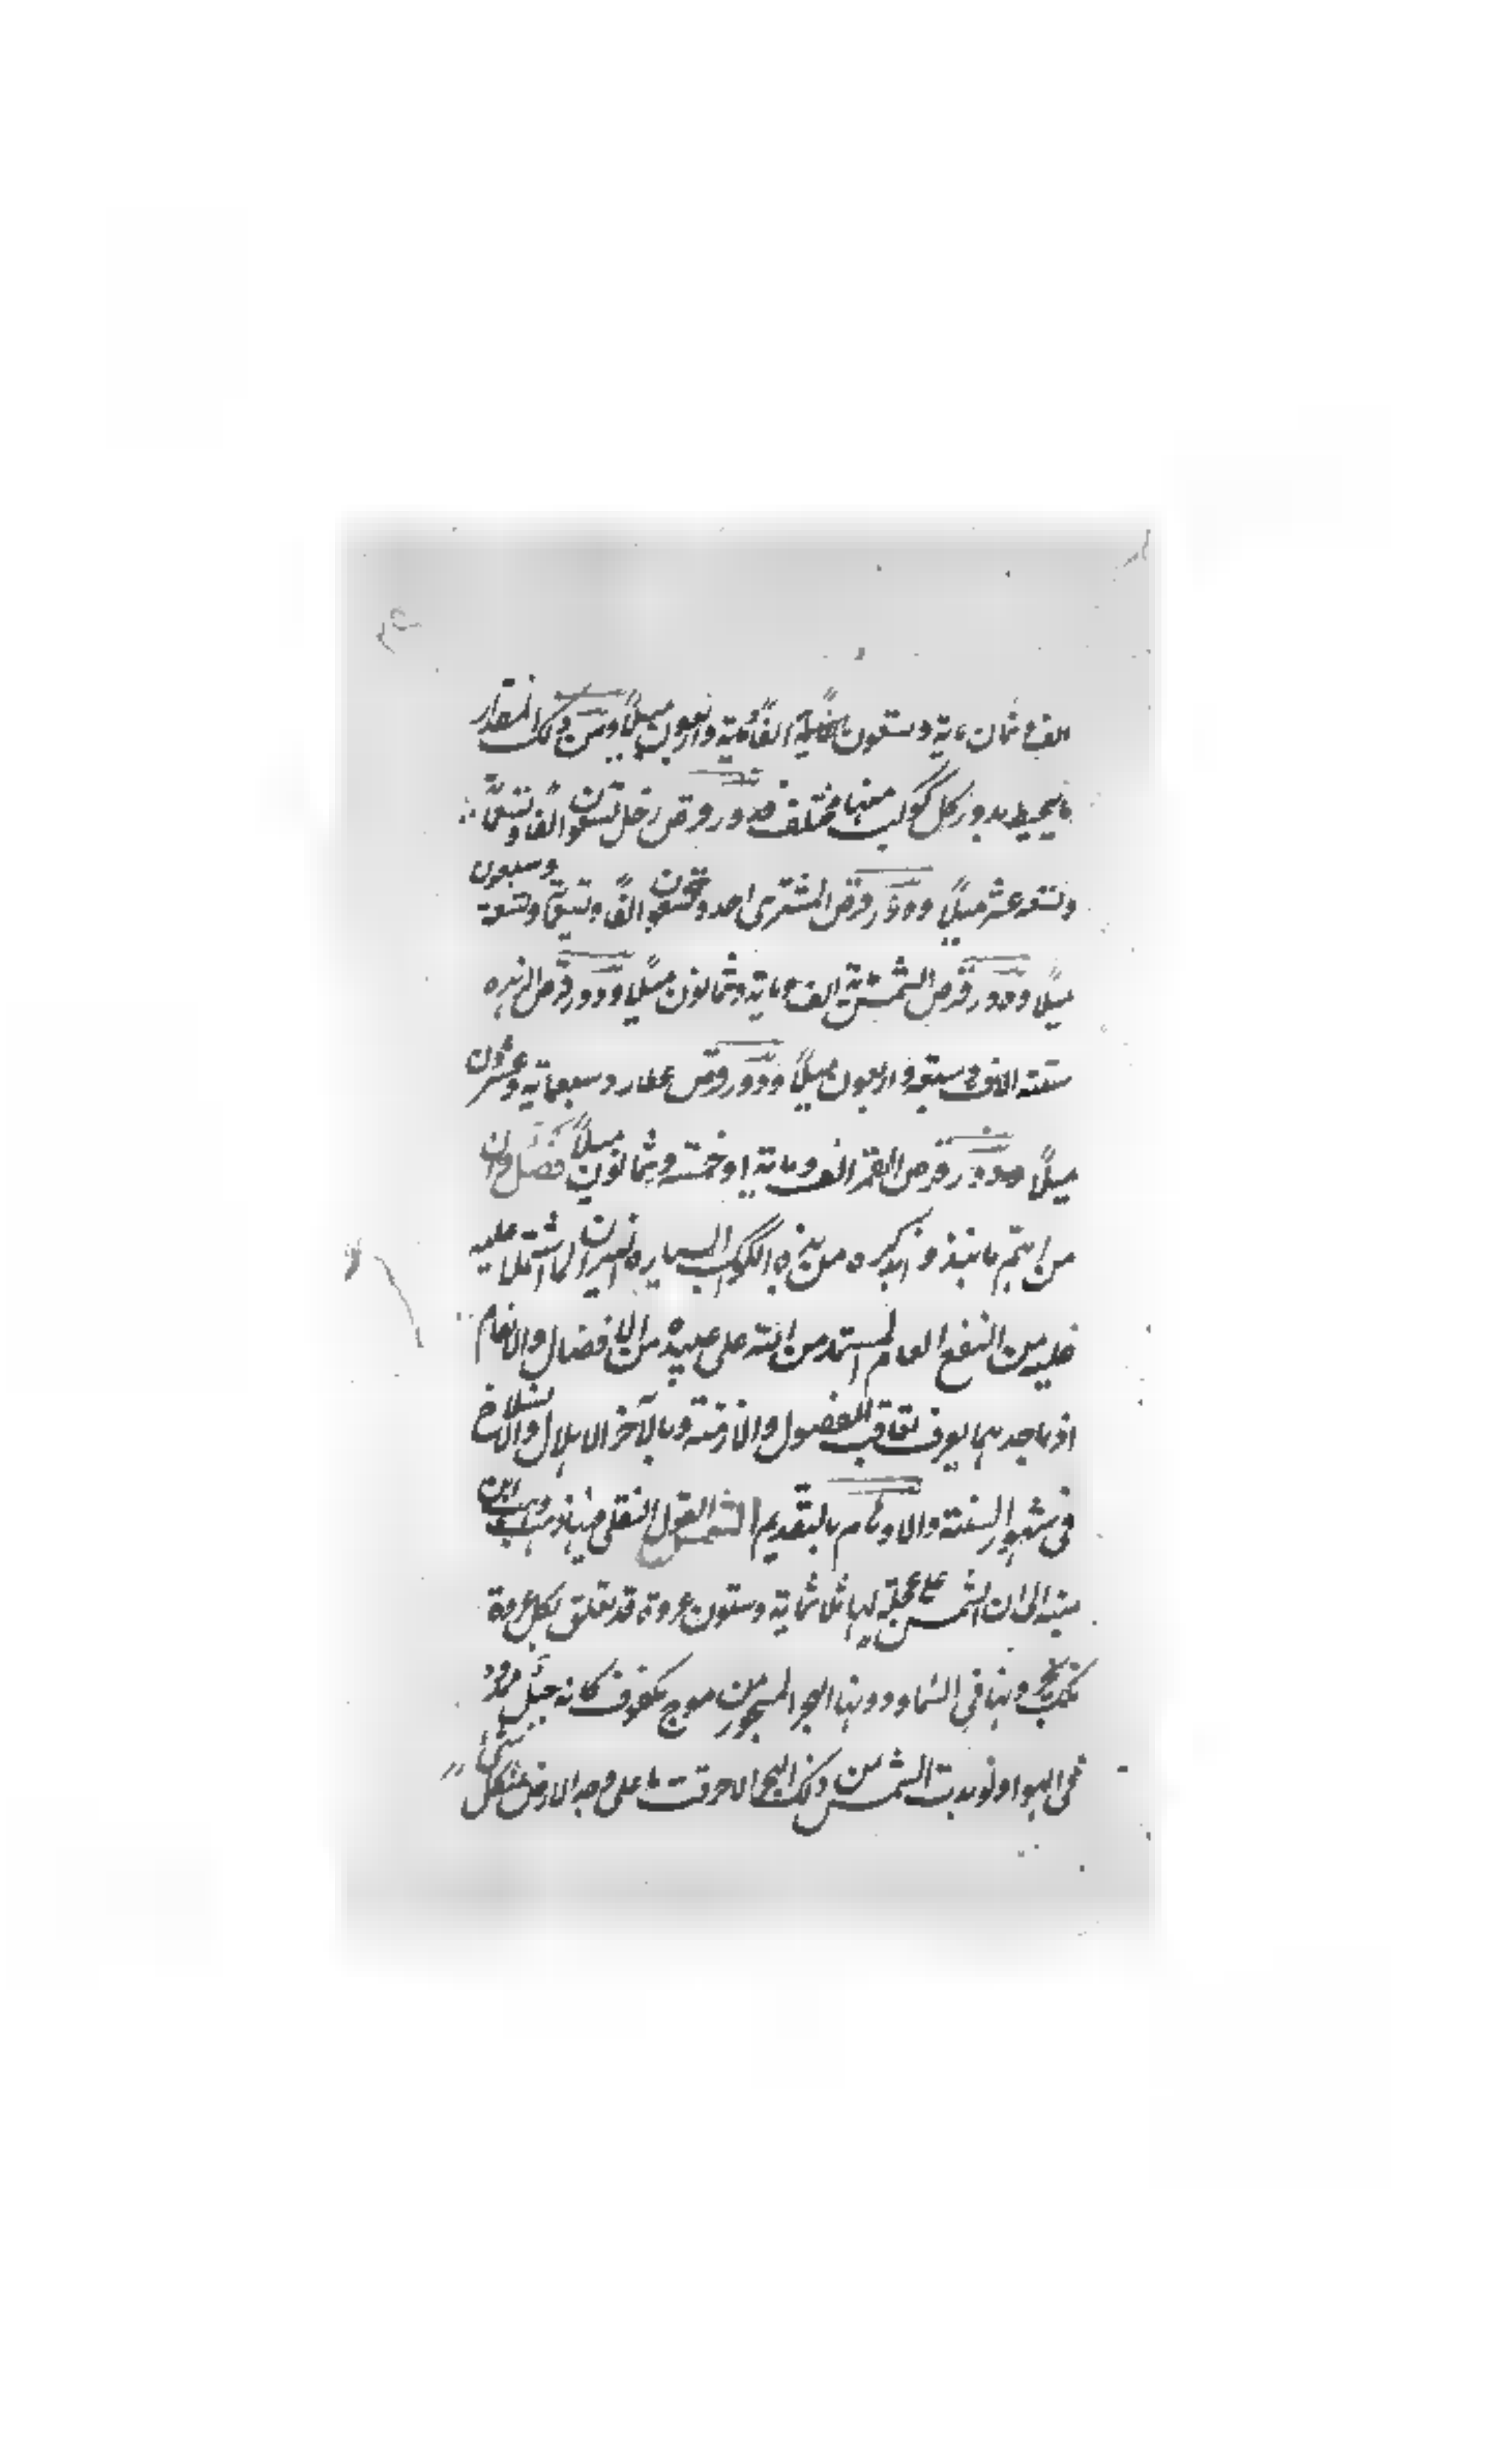 الف وثمان ماية وستون الفا ومية واربعون ميلاً ومن ذلك المقدار
ما يحيط بدور كل كوكب منها مختلف فدور قرص زحل تسعون الفا
وتسعه عشر ميلاً ودور قرص المشترى احد وتسعون الفاً وتسعة وسبعون
ميلاً ودور قرص الشمس الف وماية وثمانون ميلاً ودور قرص الزهره
ستة الاف وسبعة واربعون ميلاً ودور قرص عطارد سبعماية وعشرون
ميلاً ودور قرص القمر الف وماية وخمسة وثمانون ميلاً فصل وان
من اهتم ما ننبذه ونذكره من هذه الكواكب السياره النيران لما اشتملا عليه
عليه من النفع العام المستمد من الله على عبيده من الافضال والانعام
اذ باحدهما يعرف تعاقب الفصول والازمنة وبالآخر الاهلال والانسلاخ
فى شهور السنة والاولى بالتقديم الشمس القول النقلى فيها ذهب وهب ابن
منبه الى ان الشمس على عجلة لها ثلاثماية وستون عروة قد تعلق بكل عروة
ملك يجرونها فى السما ودونها البحر المسجور من موج مكفوف كانه جبل ممدود
فى الهوا ولو بدت الشمس من ذلك البحر لاحرقت ما على وجه الارض من كل شئ